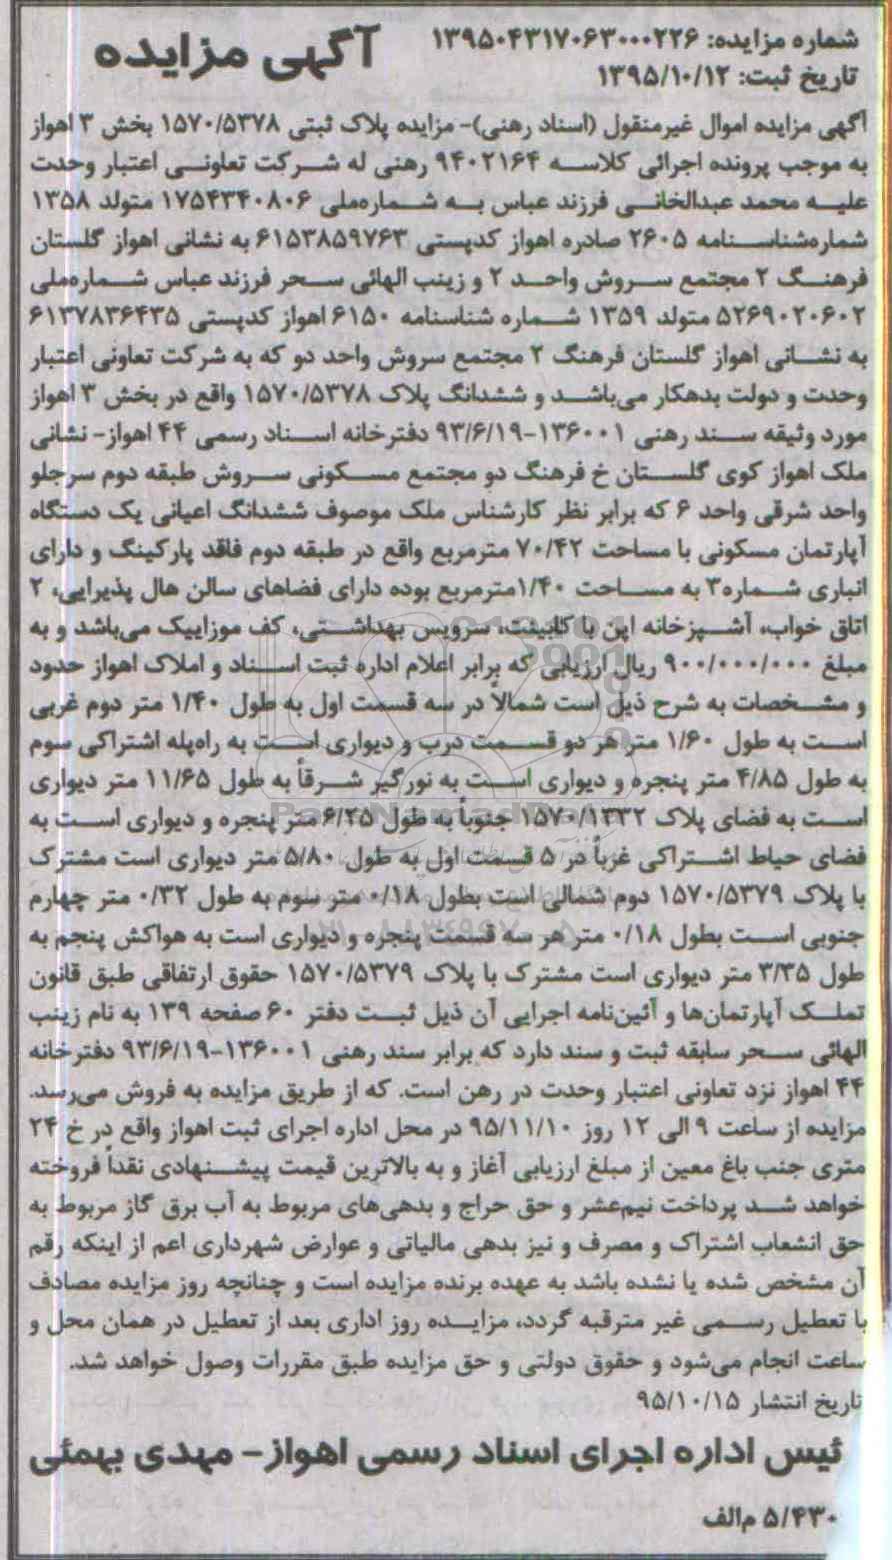 شماره مزایده: ۱۳۹۵۰۴۳۱۷۰۶۳۰۰۰۲۲۶
آگهی مزایده
تاریخ ثبت: ۱۳۹۵/۱۰/۱۲
آگهی مزایده اموال غیرمنقول (اسناد رهنی)- مزایده پلاک ثبتی ۱۵۷۰/۵۳۷۸ بخش ۳ اهواز
به موجب پرونده اجرائی کلاسه ۹۴۰۲۱۶۴ رهنی له شرکت تعاونی اعتبار وحدت
علیه محمد عبدالخانی فرزند عباس به شماره‌ملی ۱۷۵۴۳۴۰۸۰۶ متولد ۱۳۵۸
شماره‌شناسنامه ۲۶۰۵ صادره اهواز کدپستی ۶۱۵۳۸۵۹۷۶۳ به نشانی اهواز گلستان
فرهنگ ۲ مجتمع سروش واحد ۲ و زینب الهائی سحر فرزند عباس شماره‌ملی
۵۲۶۹۰۲۰۶۰۲ متولد ۱۳۵۹ شماره شناسنامه ۶۱۵۰ اهواز کدپستی ۶۱۳۷۸۳۶۴۳۵
به نشانی اهواز گلستان فرهنگ ۲ مجتمع سروش واحد دو که به شرکت تعاونی اعتبار
وحدت و دولت بدهکار می‌باشد و ششدانگ پلاک ۱۵۷۰/۵۳۷۸ واقع در بخش ۳ اهواز
مورد وثیقه سند رهنی ۱۳۶۰۰۱-۹۳/۶/۱۹ دفترخانه اسناد رسمی ۴۴ اهواز- نشانی
ملک اهواز کوی گلستان خ فرهنگ دو مجتمع مسکونی سروش طبقه دوم سرجلو
واحد شرقی واحد ۶ که برابر نظر کارشناس ملک موصوف ششدانگ اعیانی یک دستگاه
آپارتمان مسکونی با مساحت ۷۰/۴۲ مترمربع واقع در طبقه دوم فاقد پارکینگ و دارای
انباری شماره۳ به مساحت ۱/۴۰مترمربع بوده دارای فضاهای سالن هال پذیرایی، ۲
اتاق خواب، آشپزخانه اپن با کابینت، سرویس بهداشتی، کف موزاییک می‌باشد و به
مبلغ ۹۰۰/۰۰۰/۰۰۰ ریال ارزیابی که برابر اعلام اداره ثبت اسناد و املاک اهواز حدود
و مشخصات به شرح ذیل است شمالاً در سه قسمت اول به طول ۱/۴۰ متر دوم غربی
است به طول ۱/۶۰ متر هر دو قسمت درب و دیواری است به راه‌پله اشتراکی سوم
به طول ۴/۸۵ متر پنجره و دیواری است به نورگیر شرقاً به طول ۱۱/۶۵ متر دیواری
است به فضای پلاک ۱۵۷۰/۱۳۳۲ جنوباً به طول ۶/۲۵ متر پنجره و دیواری است به
فضای حیاط اشتراکی غرباً در ۵ قسمت اول به طول ۵/۸۰ متر دیواری است مشترک
با پلاک ۱۵۷۰/۵۳۷۹ دوم شمالی است بطول ۰/۱۸ متر سوم به طول ۰/۳۲ متر چهارم
جنوبی است بطول ۰/۱۸ متر هر سه قسمت پنجره و دیواری است به هواکش پنجم به
طول ۳/۳۵ متر دیواری است مشترک با پلاک ۱۵۷۰/۵۳۷۹ حقوق ارتفاقی طبق قانون
تملک آپارتمان‌ها و آئین‌نامه اجرایی آن ذیل ثبت دفتر ۶۰ صفحه ۱۳۹ به نام زینب
الهائی سحر سابقه ثبت و سند دارد که برابر سند رهنی ۱۳۶۰۰۱-۹۳/۶/۱۹ دفترخانه
۴۴ اهواز نزد تعاونی اعتبار وحدت در رهن است. که از طریق مزایده به فروش می‌رسد.
مزایده از ساعت ۹ الی ۱۲ روز ۹۵/۱۱/۱۰ در محل اداره اجرای ثبت اهواز واقع در خ ۲۴
متری جنب باغ معین از مبلغ ارزیابی آغاز و به بالاترین قیمت پیشنهادی نقداً فروخته
خواهد شد پرداخت نیم‌عشر و حق حراج و بدهی‌های مربوط به آب برق گاز مربوط به
حق انشعاب اشتراک و مصرف و نیز بدهی مالیاتی و عوارض شهرداری اعم از اینکه رقم
آن مشخص شده یا نشده باشد به عهده برنده مزایده است و چنانچه روز مزایده مصادف
با تعطیل رسمی غیر مترقبه گردد، مزایده روز اداری بعد از تعطیل در همان محل و
ساعت انجام می‌شود و حقوق دولتی و حق مزایده طبق مقررات وصول خواهد شد.
تاریخ انتشار ۹۵/۱۰/۱۵
ئیس اداره اجرای اسناد رسمی اهواز- مهدی بهمئی
۵/۴۳۰ م‌الف